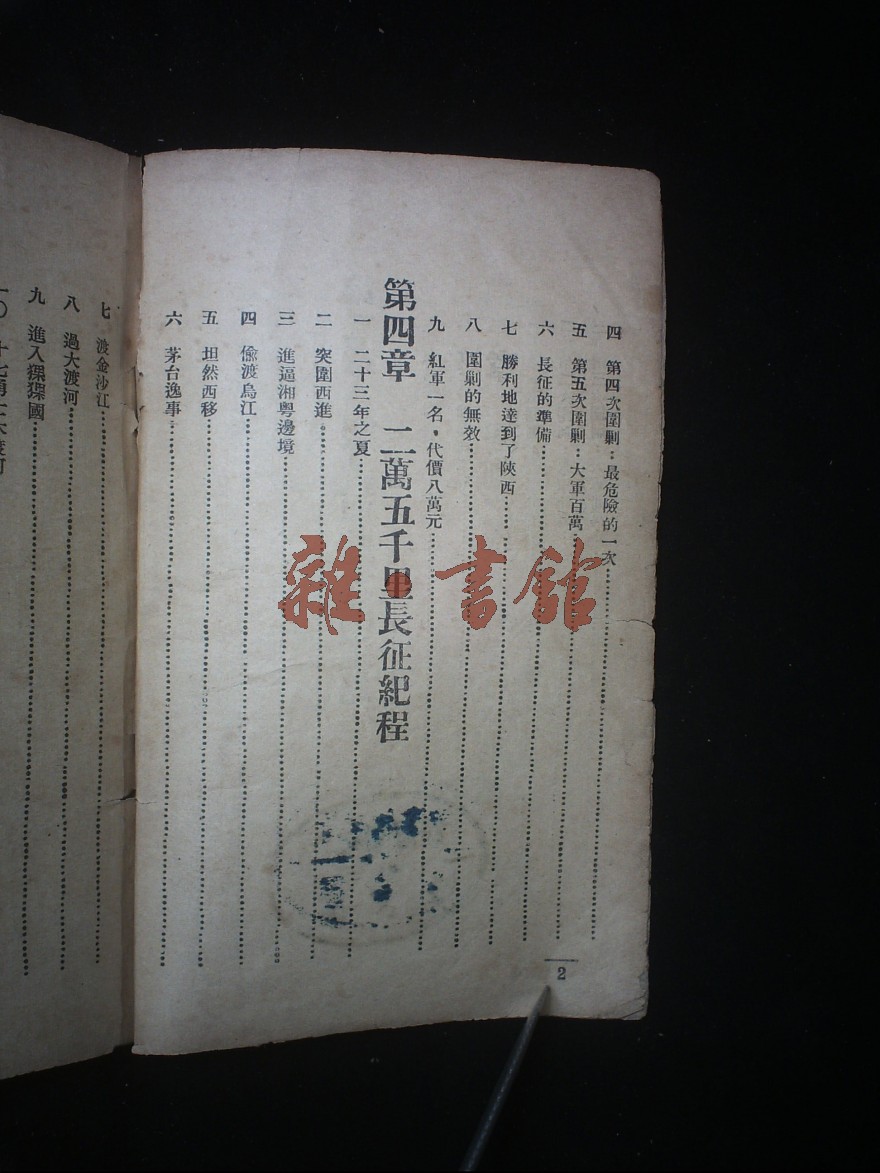 四 第四次圍剿：最危險的一次
五 第五次圍剿：大軍百萬
六 長征的準備
七 勝利地達到了陝西
八 圍剿的無效
九 紅軍一名，代價八萬元
第四章 二萬五千里長征紀程
一 二十三年之夏
二 突圍西進
三 進逼湘粵邊境
四 偸渡烏江
五 坦然西移
六 茅台逸事
2
七 渡金沙江
八 過大渡河
九 進入猓猓國
一〇 十七勇士大渡河
雜·書館